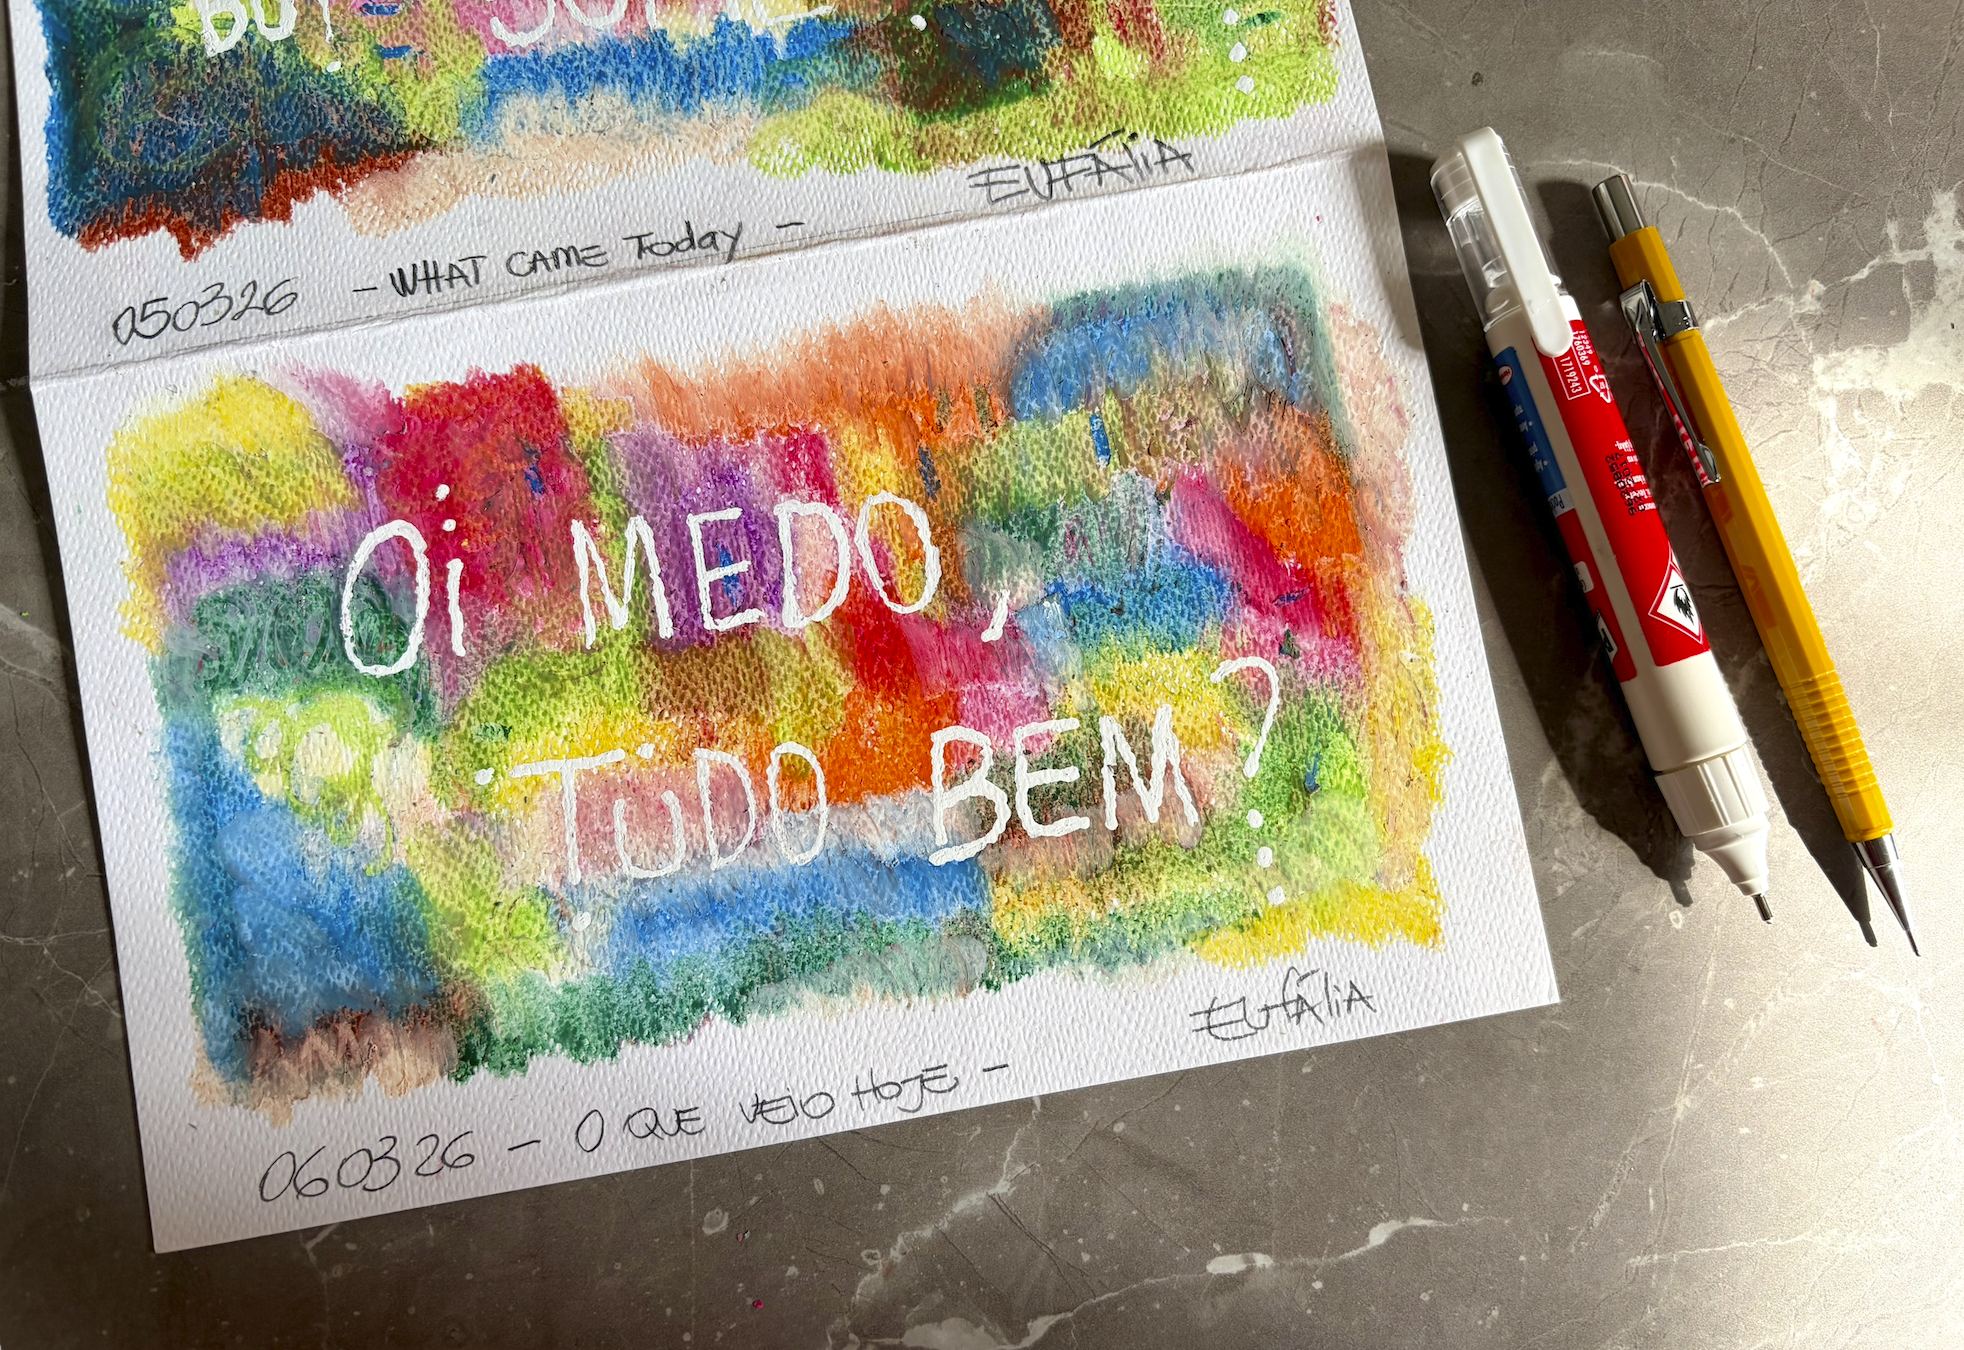 BUT SOME
EUFÁLIA
050326 - WHAT CAME Today -
Oi MEDO,
TUDO BEM?
EUFÁLIA
060326 - O QUE VEIO HOJE -
1719243